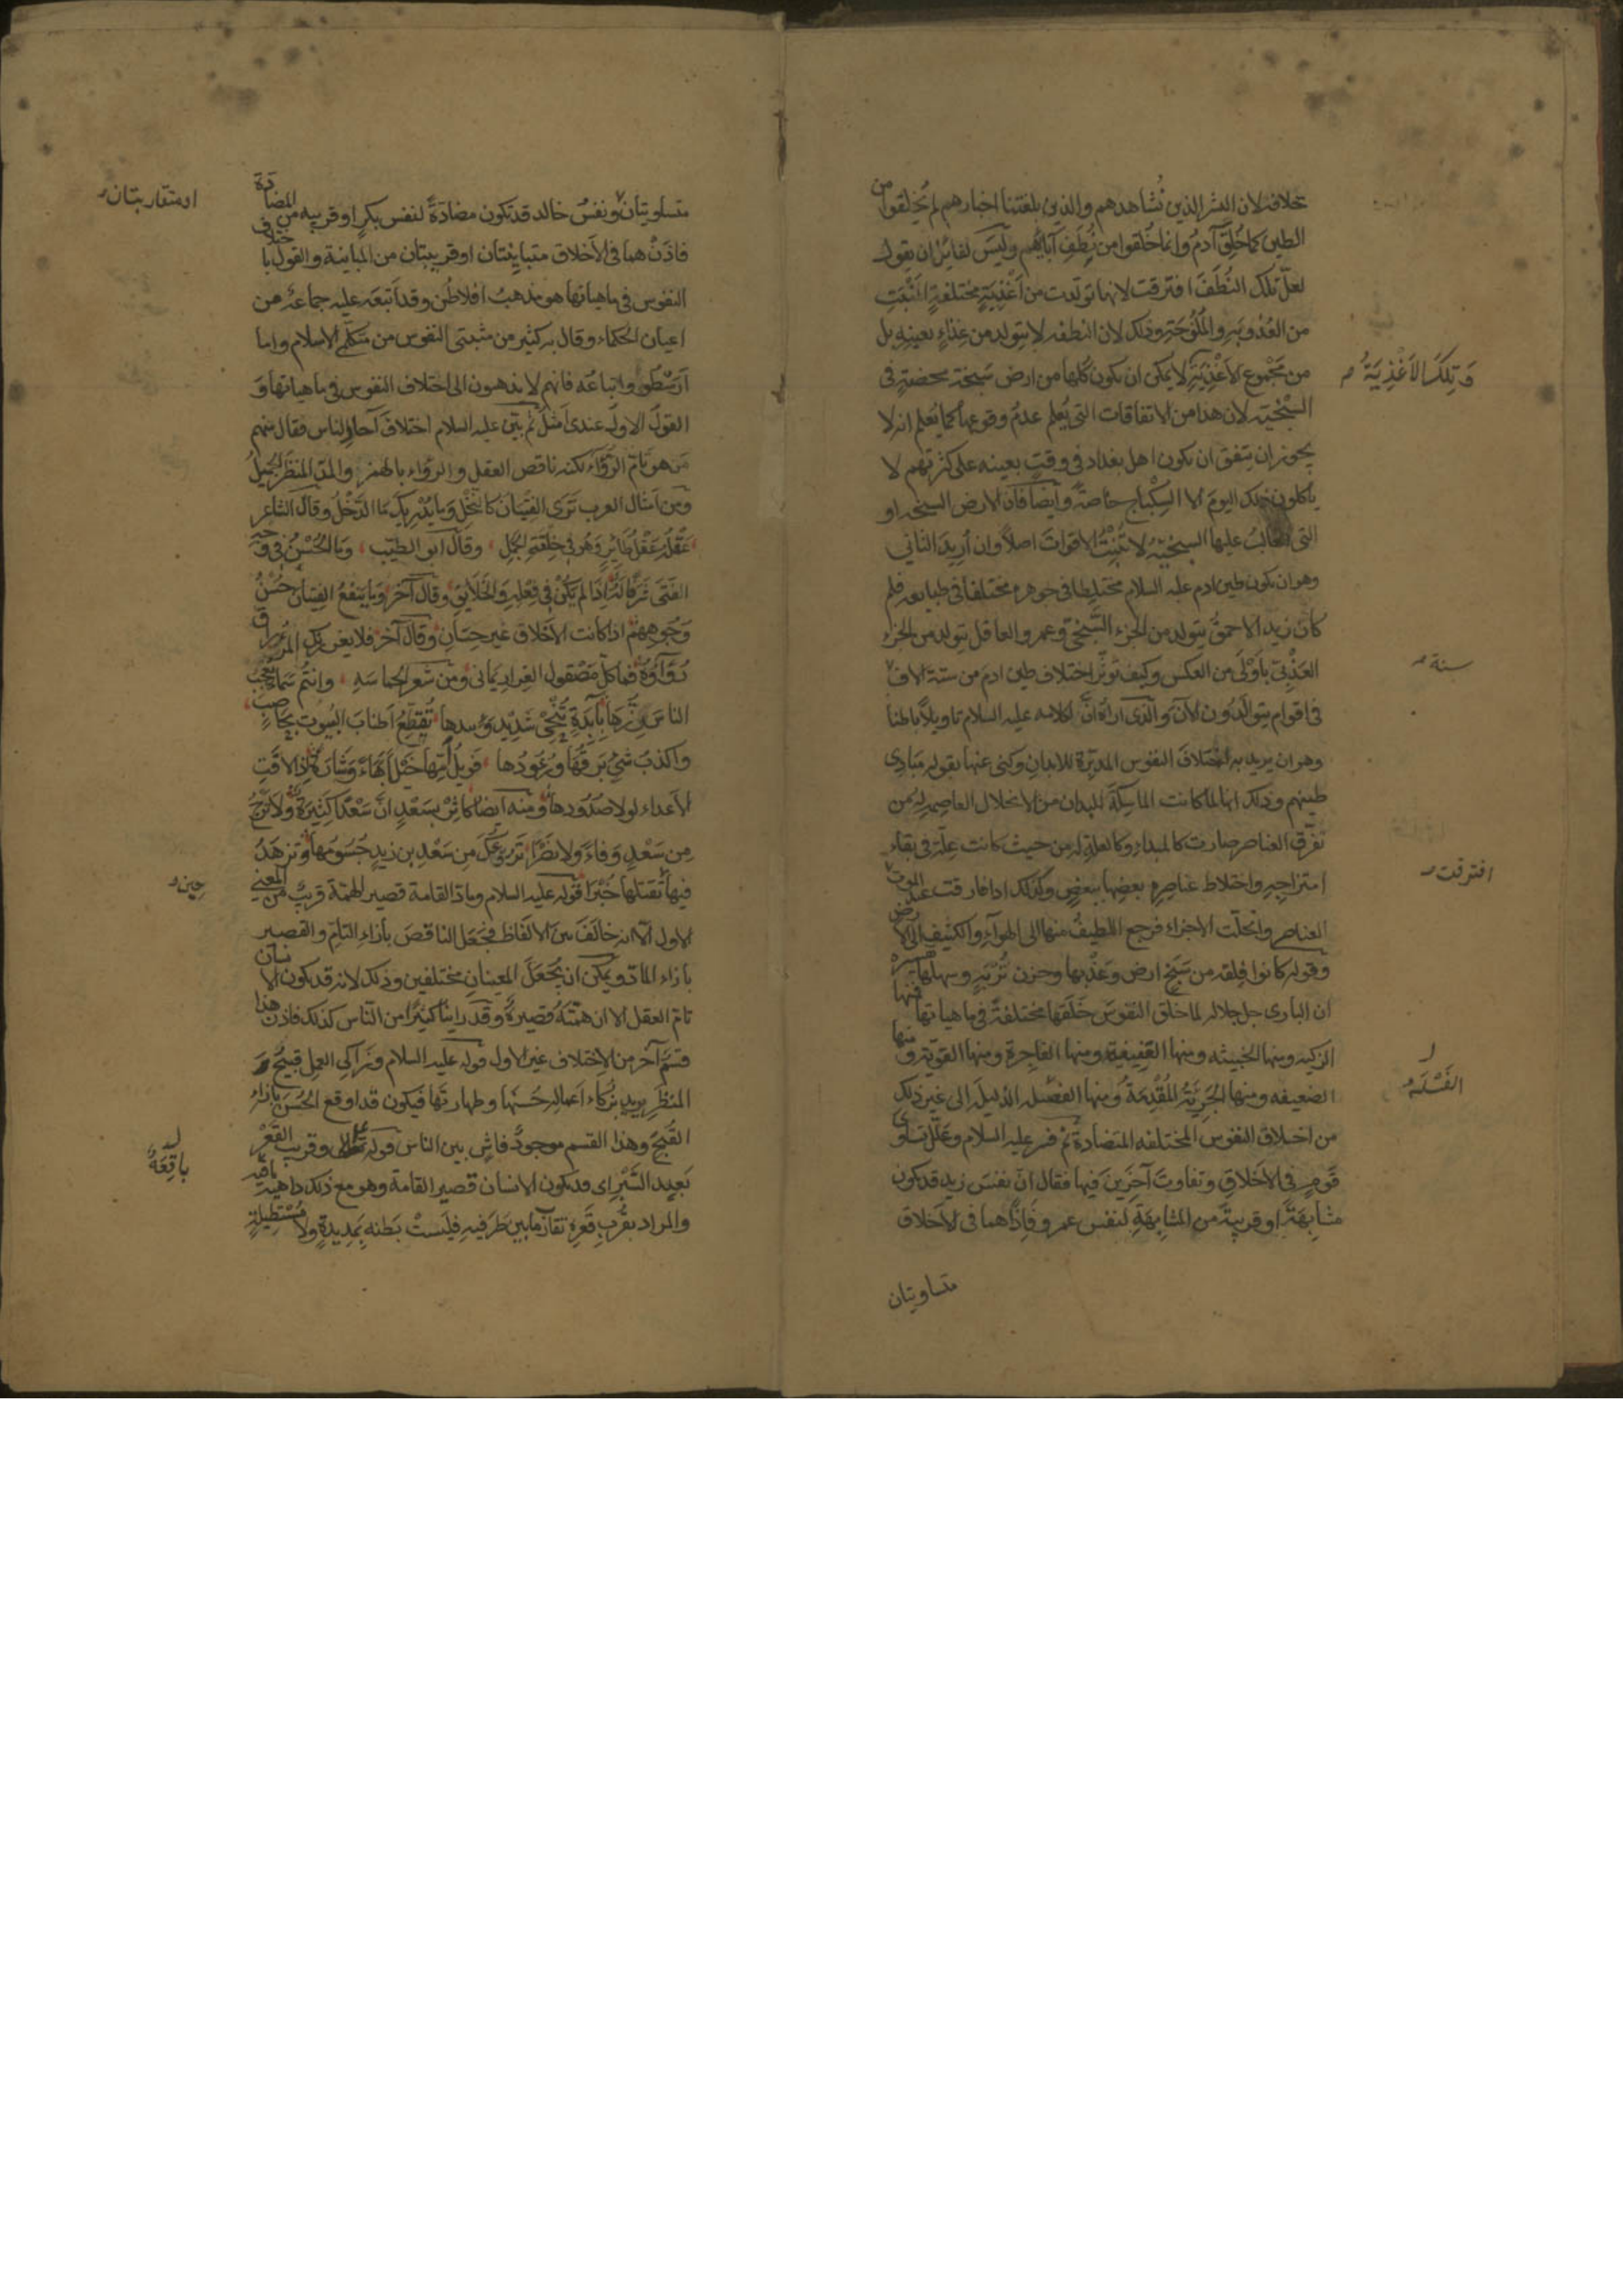 خلافه لان البشر الذين نُشاهدهم والذين بلغتنا اخبارهم لم يُخلقوا من
الطين كما خُلِقَ آدمُ وانما خُلقوا من نُطَفِ آبائهم وليسَ لقائلٍ ان يقول
لعلّ تلك النُطَفَ افترقت لانها تولدت من اَغْذِيَةٍ مختلفةِ المَنْبَتِ
من العُذوبَةِ والمُلُوحَةِ وذلك لان النطفه لا يتولد من غِذاءٍ بعينه بل
من مَجْموع الاَغْذِيَةِ لا يمكن ان يكون كلها من ارض سَبِخَة محضةٍ فى
وَتِلكَ الاَغْذِيَةُ
السَبْخيّه لان هذا من الاتفاقات التى يُعلم عدمُ وقوعها كما يُعلم انه لا
يجوز ان يتفق ان يكون اهل بغداد فى وقتٍ بعينه على كثرتهم لا
ياكلون ذلك اليومَ الا السِكْباج خاصةً وايضا فان الارض السبخه او
التى الغالبُ عليها السبخيّةُ لا تُنْبِتُ الاقوات اصلاً وان اُريدَ الثانى
وهو ان يكون طين ادم عليه السلام مختلِطا فى جوهره مختلفا فى طبايعه فلم
كان زيد الاحمقُ يتولد من الجزء السَّبْخىّ وعمرو العاقل يتولد من الجزء
العَذْبىّ باَوْلَى من العكس وكيف يُؤثّر اختلاف طين ادمَ من ستة الاف
سنة
فى اقوام يتوالَدُون الآنَ والذى اراه اَنّ لكلامه عليه السلام تاويلاً باطناً
وهو ان يريد به اختلافَ النفوس المدبّرة للابدان وكنى عنها بقوله مَبَادِى
طينهم وذلك انها لما كانت الماسِكةَ للبدن من الانحلال العاصِمةَ له من
تفرّق العناصر صارت كالمبداءِ وكالعلةِ له من حيث كانت عِلّةً فى بقاء
امتزاجِهِ واختلاط عناصِرِهِ بعضِها ببعضٍ وكذلك اذا فارقت عند الموت
افترقت
العناصر وانحلّت الاجزاء فرجع اللطيفُ منها الى الهوآءِ والكثيف الى الارض
وقوله كانوا فِلقة من سَبَخِ ارضٍ وعَذْبِها وحزن تُرْبَةٍ وسهلها تفسيره
ان البارى جل جلاله لما خلق النفوسَ خَلَقَها مختلفةً فى ماهياتها فمنها
الزكيه ومنها الخبيثه ومنها العَفِيفة ومنها الفاجِرة ومنها القويّة ومنها
الضعيفه ومنها الجَرِيّةُ المُقْدِمَةُ ومنها الفشله الذليلةَ الى غير ذلك
الفَشِلَةُ
من اختلاف النفوس المختلفه المتضادة ثم فسر عليه السلام وعَلّل تَساوِى
قومٍ فى الاَخلاقِ وتفاوتَ آخَرِينَ فيها فقال انّ نفسَ زيدٍ قد تكون
مشابِهَةً او قريبةً من المشابِهَةِ لنفس عمرو فاِذًا هما فى الاَخلاق
متساويتان
متساويتان ونفسُ خالد قد تكون مضادّةً لنفس بكرٍ او قريبه من المضادّة
او متقاربتان
فاذن هما فى الاَخلاق متباينتان او قريبتان من المباينة والقول باختلاف
النفوس فى ماهياتها هو مذهبُ افلاطُن وقد اتبعَه عليه جماعةٌ من
اعيان الحكماء وقال به كثير من مثبتى النفوس من متكلمى الاسلام واما
اَرَسْطُو واتباعُه فانهم لا يذهبون الى اختلاف النفوس فى ماهياتها وَ
القولُ الاول عندى اَمثَلُ ثم بيّن عليه السلام اختلافَ آحادِ الناس فقال منهم
مَن هو تامّ الرُّوَاء لكنه ناقص العقل والرُوَاء بالهمز والمدّ المنظَرُ الجميلُ
ومن اَمثال العرب تَرَى الفِتيَان كالنّخْل وَمَا يُدْرِيكَ مَا الدَّخْلُ وقال الشاعر
عَقْلُه عَقْلُ طَائِرٍ وَهُوَ فى خِلْقَةِ الجَمَلِ وقال ابو الطيّب وَمَا الحُسْنُ فى وَجْهِ
الفَتَى شَرَفًا لَهُ اِذَا لم يَكُنْ فى فِعْلِهِ وَالخَلَائِقِ وقال آخَر وَمَا يَنْفَعُ الفِتيَانَ حُسْنُ
وُجُوهِهِمْ اذا كانت الاَخلاق غير حِسَانِ وقال آخر فلا يغررنك المرء راق
رُوَاؤُهُ فما كلّ مَصْقول الغِرارِ يَمانى ومن شعر الحماسه وانتُمُ سَماءٌ يُعجِبُ
الناسَ رِزُّهَا بِآبِدَةٍ تُنْحى شديدٍ وَئيدها تُقطّعُ اَطنابَ البُيوتِ بحاصِبٍ
واكذبُ شىءٍ بَرقُها ورُعودُها فويلُ اُمّها خَيْلًا بَهَاءً وشارةً اذا لاقتِ
الاَعداء لولا صُدُودها ومنه ايضا كاثِرْ بسَعْدٍ انَّ سَعْدًا كَثِيرَةٌ ولا تَرْجُ
مِن سَعْدٍ وَفاءً ولا نَصْرَا تَرُوعُكَ مِن سَعْدِ بن زيدٍ جُسُومُها وتزهَدُ
فيها تَقتلها خُبْرَا قوله عليه السلام ومادّ القامة قصير الهمّة قريبٌ من المعنى
حِين
الاول الا انه خالَفَ بين الالفاظ فجَعَلَ الناقصَ بازاءِ التامّ والقصير
بازاء المادّ ويمكن ان يُجْعَلَ المعنيانِ مختلفين وذلك لانه قد يكون الانسان
تامّ العقل الا ان همّتَهُ قصيرةٌ وقد راينا كثيرًا من الناس كذلك فاذن هذا
قِسمٌ آخر من الاختلاف غير الاول قوله عليه السلام وزَاكِى العمل قبيحُ
المنظَرِ يريد بزكاءِ اَعماله حُسْنَها وطهارتَها فيكون قد اوقع الحُسنَ بازاءِ
القُبْح وهذا القسم موجودٌ فاشٍ بين الناس قوله وقريب القَعْرِ
بَعِيد السَّبْر اى قد يكون الانسان قصير القامة وهو مع ذلك داهيةً باقعةً
باقِعَةً
والمراد بقُربِ قَعْرِهِ تقارُبُ ما بين طَرَفيهِ فليسَتْ بَطنه بِمَدِيدةٍ ولا مُسْتَطِيلةٍ